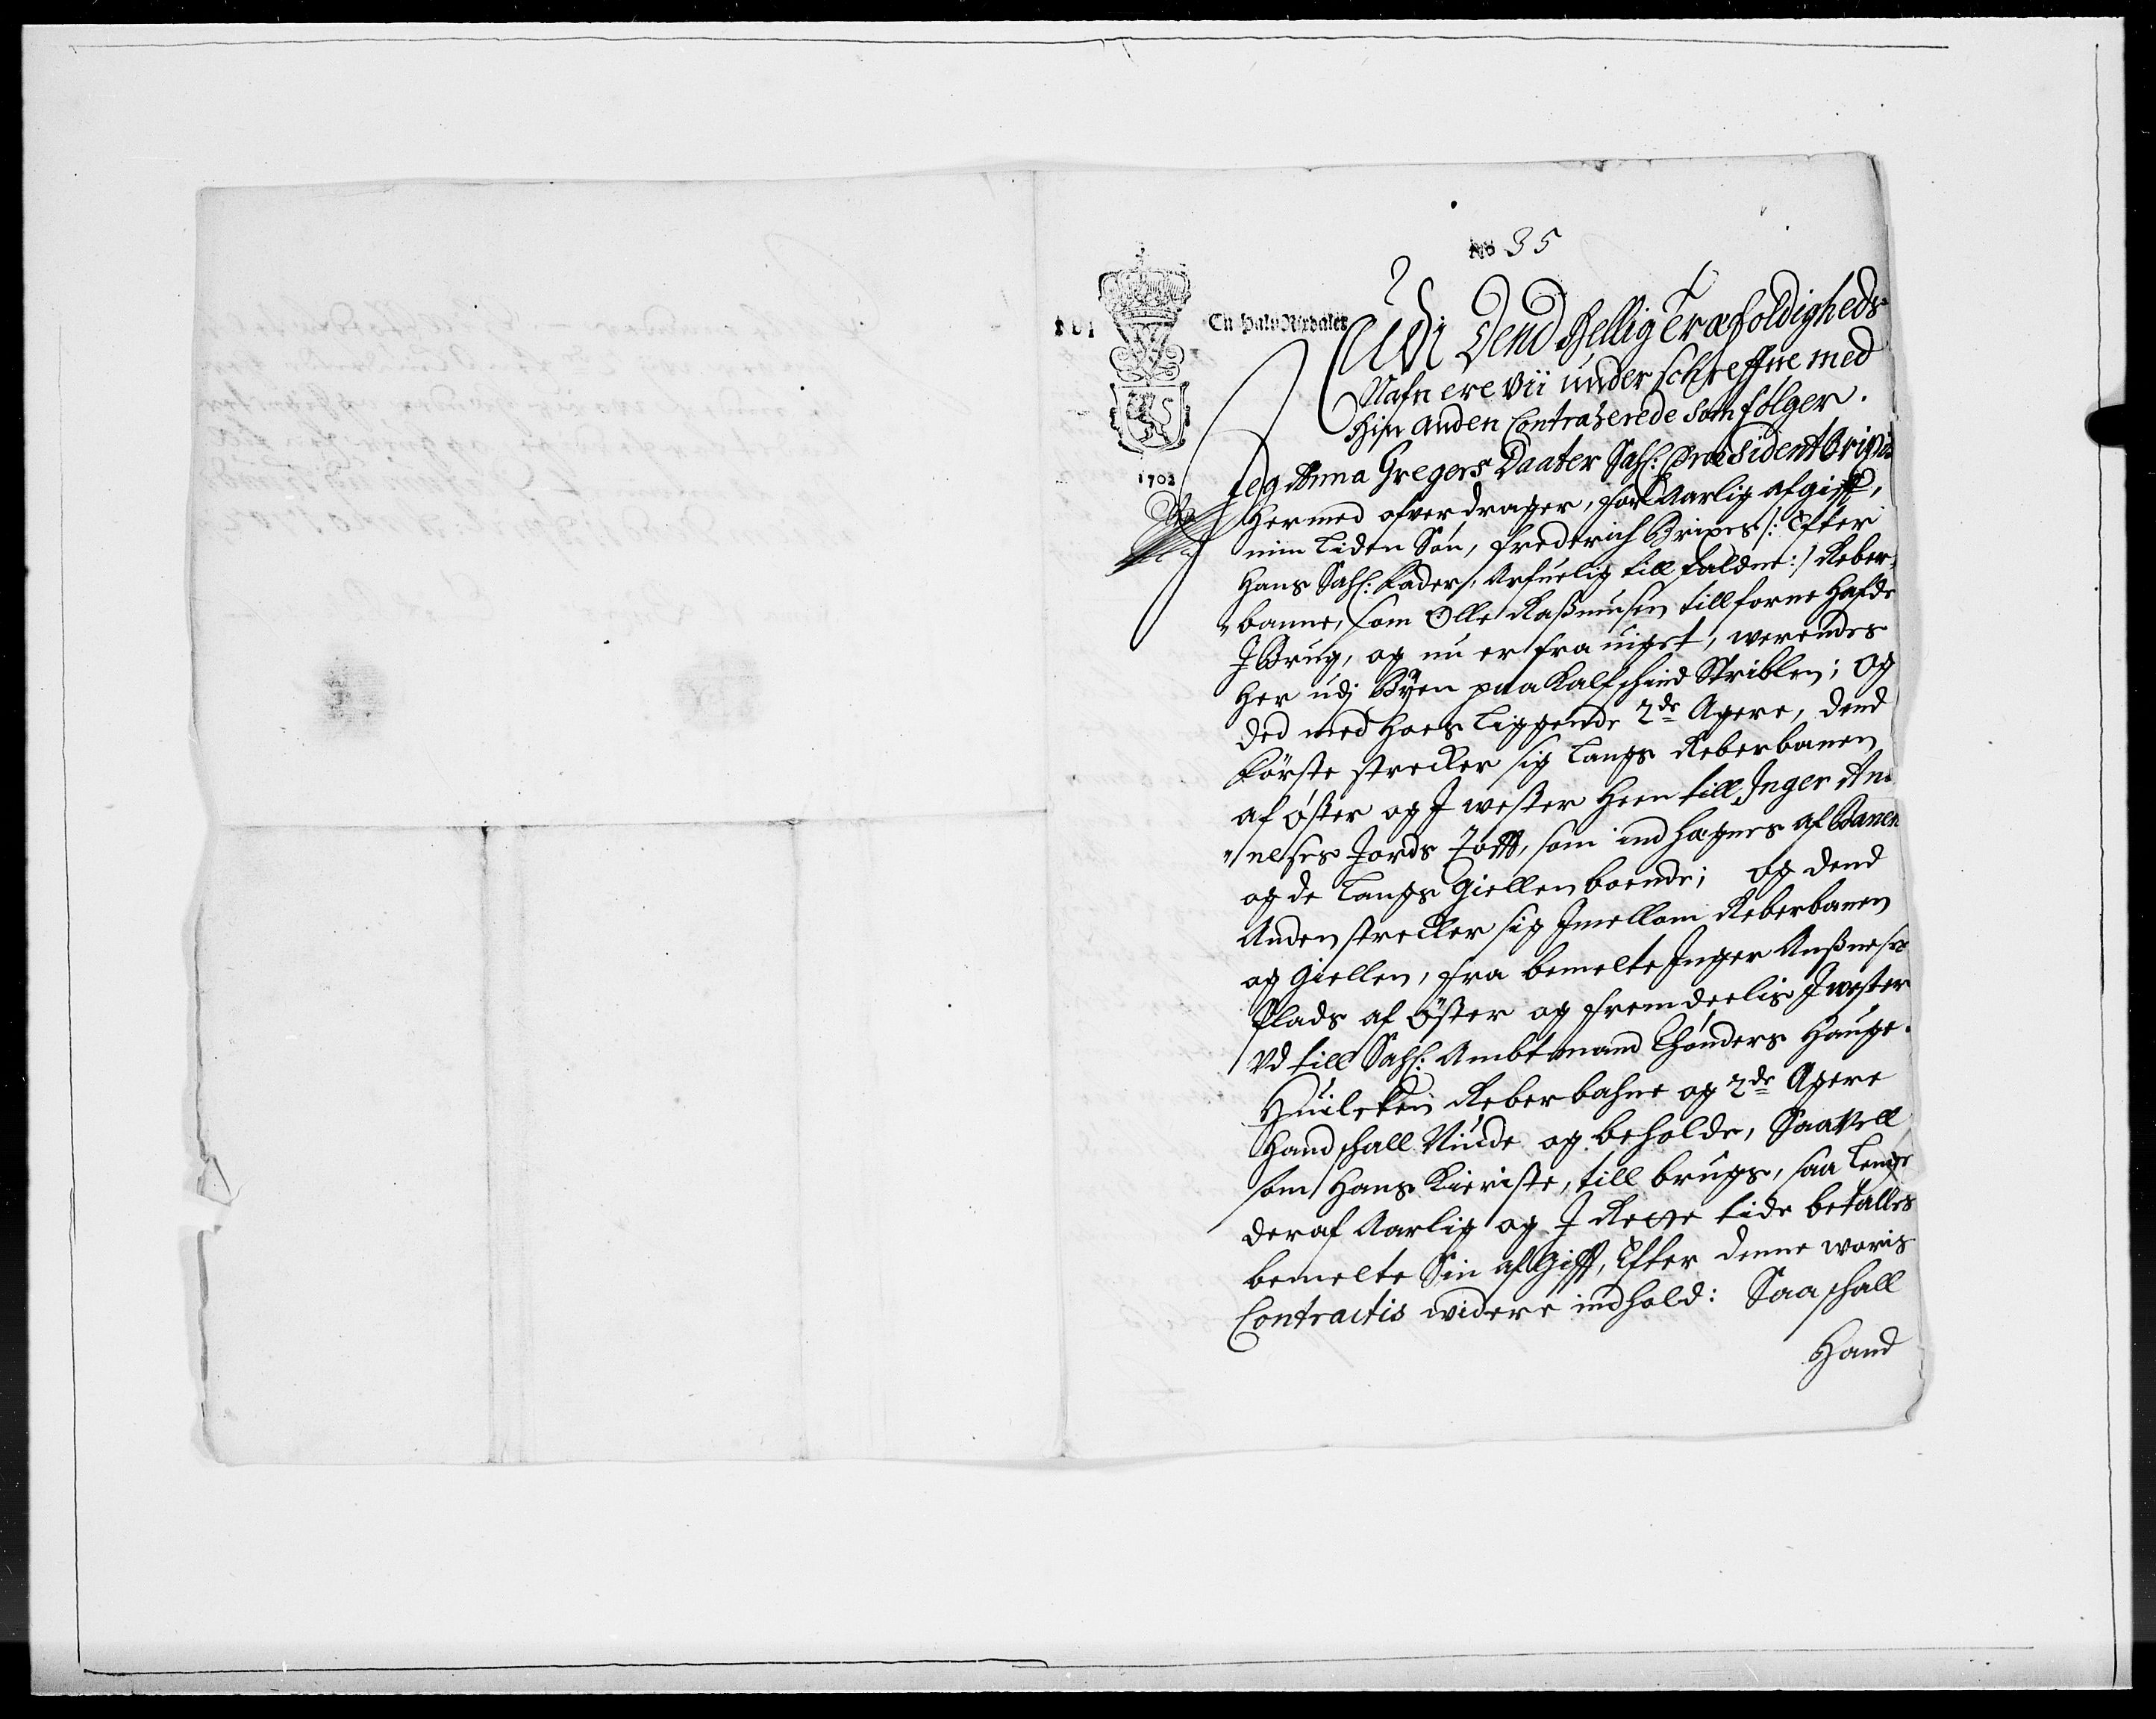 No 35
En Halv Rixdaler
1702
Udi Dend Hellig Træfoldigheds
Nafn ere vii underschreffne med
Hin anden Contraherede som følger.
Jeg Anna Gregers Daater Sahl: Præsident Brixis
Hermed ofverdrager, for Aarlig afgifft,
min Liden Søn, Frederich Brixes /: Efter
Hans Sahl: Fader, Arfuelig till faldne :/ Reber,
banne, som Olle Rasmusen tillforne Hafde
J Brug, og nu er fra uiget, werendes
Her udj Byen paa Kalfschind Striblen; Og
ded med Hoes Liggende 2de Agere, dend
Første strecker sig Langs Reberbanen
af øster og J wester Heen till Inger An=
nes Jords Todt, som ind Hægnes af Banen
og de Langs Giellen boende; og dend
Anden strecker sig Jmellom Reberbanen
og Giellen, fra bemelte Inger
Plads af Øster og fremdeelis J wester
Vd till Sahl: Ambtmand Thønders Hauge.
Huilcken Reberbahne og 2de Agere
Hand schall Niude og beholde, Saavell
som Hans Kieriste, till brugs, saa Lenge
deraf Aarlig og J Rette tide betalles
bemelte Sin afgifft, Efter denne woris
Contractis widere indhold: Saa schall
Hand